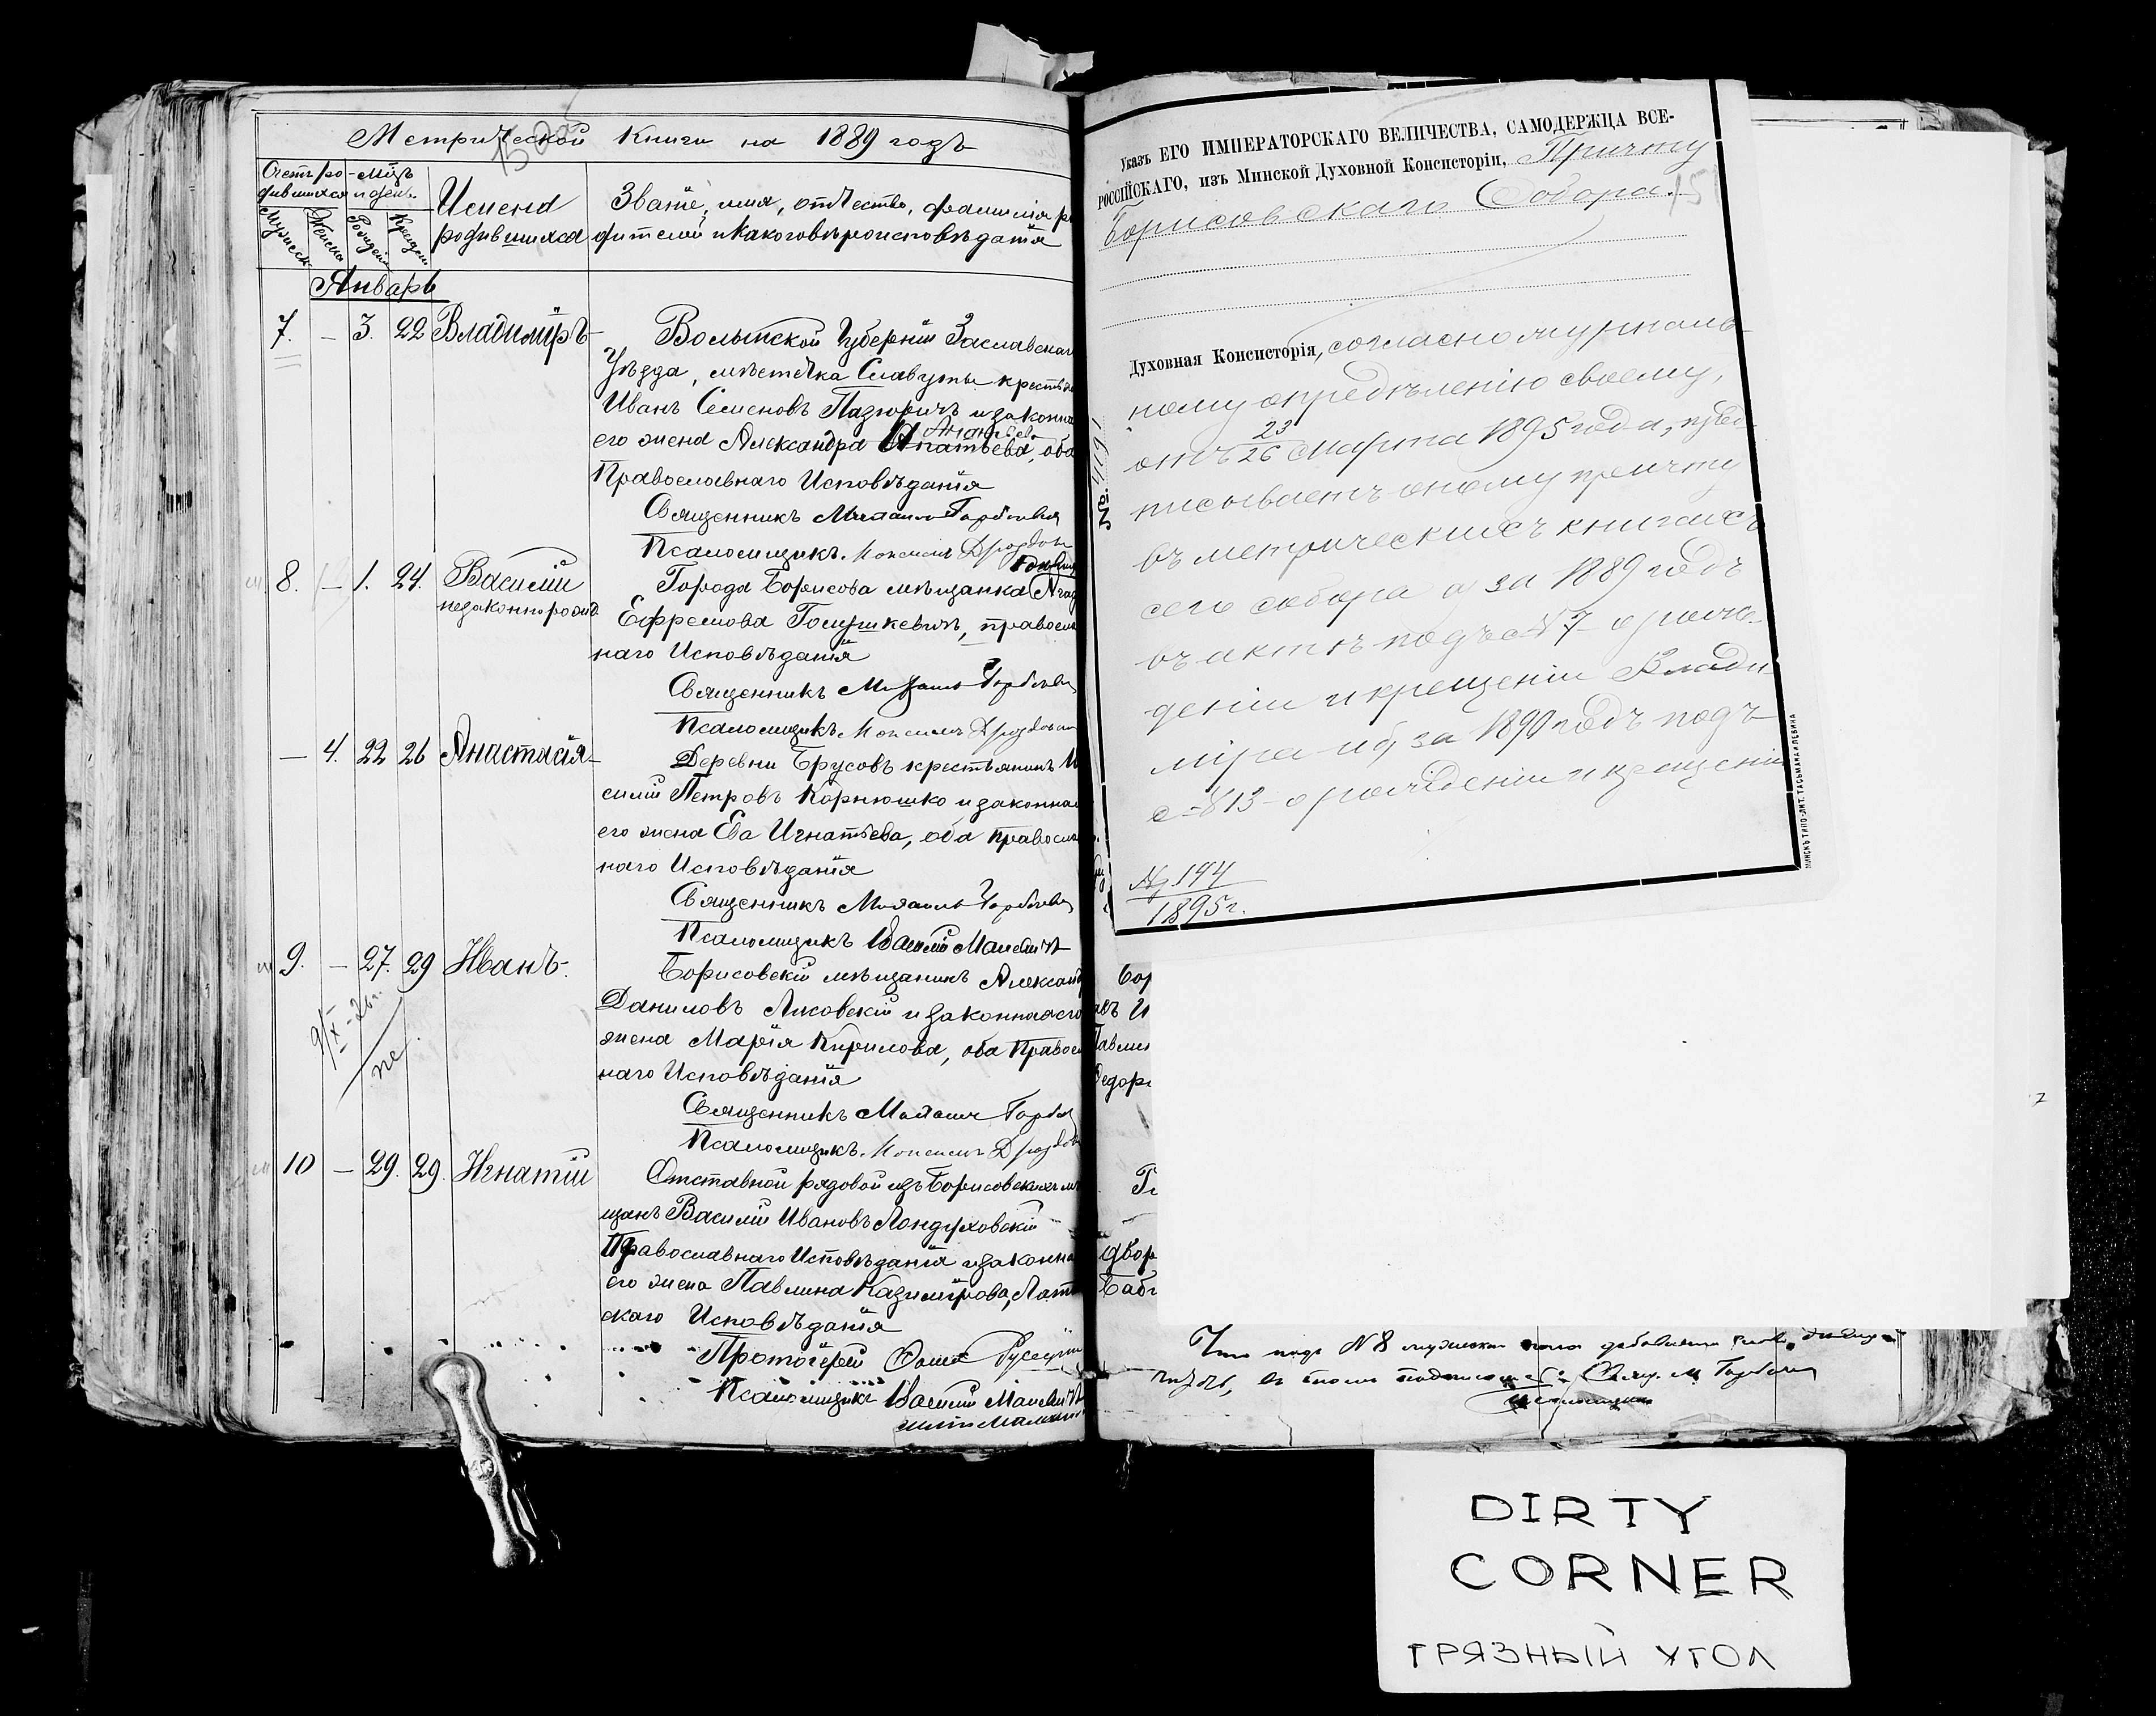 Метрической Книги на 1889 годъ
15 об
Счетъ ро-
дившихся
Мѣцъ
и день.
Мужеск.
Женска
Рожден
Крещен
Имена
родившихся
Званіе, имя, отчество, фамилія ро
дителей и какого вѣроисповѣданія
Январь
7. – 3. 22 Владиміръ
Волынской Губерніи Заславскаго
Уѣзда, мѣстечка Славуты крестьян
Иванъ Семеновъ Пазюричъ и законна
его жена Александра Игнатьева, оба
Ананьева
Православнаго Исповѣданія
Священникъ Михаилъ Горбацевич
Псаломщикъ. Максимъ Дроздов
8. – 1. 24. Василій
незаконнорожд
Города Борисова мѣщанка
Ефремова Голушкевичъ, православ
наго Исповѣданія
Священникъ Михаилъ Горбацевич
Псаломщикъ. Максимъ Дроздов
– 4. 22 26 Анастасія
Деревни Брусовъ крестьянинъ
силій Петровъ Корнюшко и законная
его жена Ева Игнатьева, оба Православ
наго Исповѣданія
Священникъ Михаилъ Горбацевич
Псаломщикъ Василій Малевичъ
9. – 27. 29 Иванъ.
Борисовскій мѣщанинъ Александ
Даниловъ Лисовскій и законная его
жена Марія Кирилова, оба Правосл
наго Исповѣданія
Священникъ Михаилъ Горбац
Псаломщикъ. Максимъ Дроздов
10 – 29. 29. Игнатій
Отставной рядовой изъ Борисовскихъ мѣ
щанъ Василій Ивановъ Лондуховскій
Православнаго Исповѣданія и законна
его жена Павлина Казимірова, Латин
скаго Исповѣданія
Протоіерей
Псаломщикъ Василій Малевичъ
Указъ ЕГО ИМПЕРАТОРСКАГО ВЕЛИЧЕСТВА, САМОДЕРЖЦА ВСЕ-
РОССІЙСКАГО, изъ Минской Духовной Консисторіи, Причту
Борисовскаго Собора.
15
Духовная Консисторія, согласно журналь-
ному опредѣленію своему,
отъ 23/26 Марта 1895 года, пред-
писываетъ оному причту
въ метрическихъ книгахъ
сего собора а за 1889 годъ
въ актѣ подъ № 7 о рож-
деніи и крещеніи Влади-
міра и б, за 1890 годъ подъ
№ 13 – о рожденіи и крещеніи
№ 194
1895 г.
№ 1611
МИНСКЪ ТИПО-ЛИТ. ТАСЬМАНА И ЛЕВИНА
Бор
Павлин
Ѳедор
двор
Баб
Что подъ № 8 мужеска пола добавлено слово
въ томъ подписом Свящ. М. Горбацевич
Псаломщикъ
DIRTY
CORNER
ГРЯЗНЫЙ УГОЛ